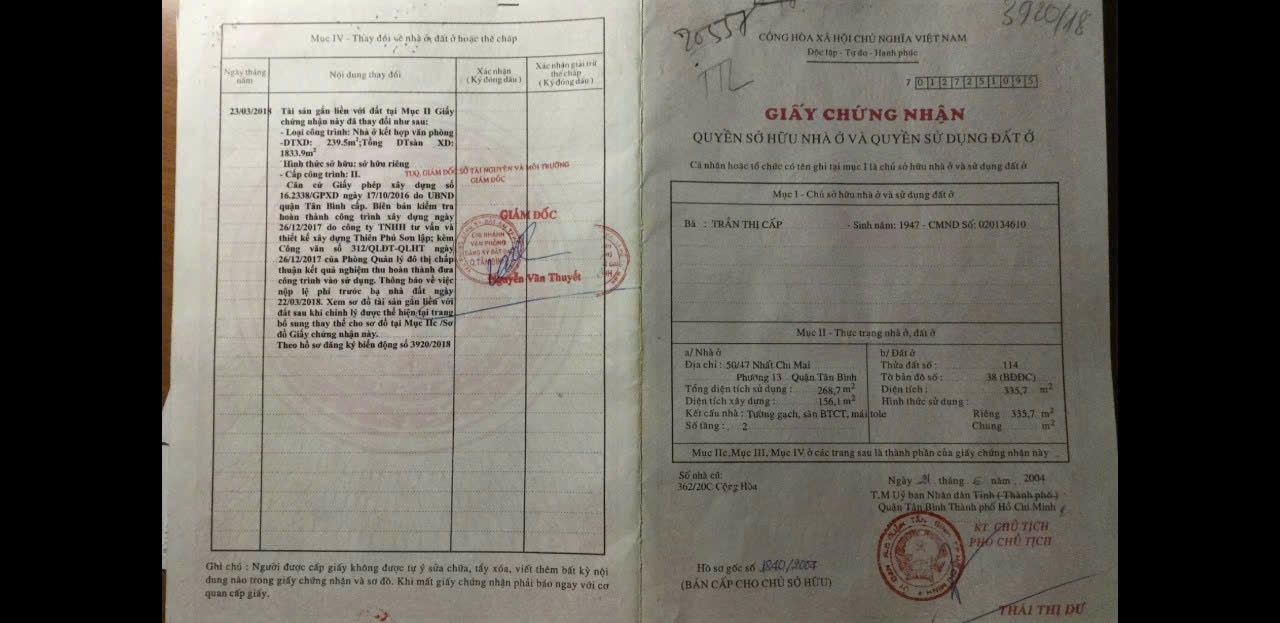 Mục IV - Thay đổi về nhà ở, đất ở hoặc thế chấp
Ngày tháng năm
Nội dung thay đổi
Xác nhận
( Ký đóng dấu )
Xác nhận giải trừ thế chấp
( Ký đóng dấu )
23/03/2018
Tài sản gắn liền với đất tại Mục II Giấy
chứng nhận này đã thay đổi như sau:
- Loại công trình: Nhà ở kết hợp văn phòng
-DTXD: 239.5m²;Tổng DTsàn XD:
1833.9m²
Hình thức sở hữu: sở hữu riêng
- Cấp công trình: II.
Căn cứ Giấy phép xây dựng số
16.2338/GPXD ngày 17/10/2016 do UBND
quận Tân Bình cấp. Biên bản kiểm tra
hoàn thành công trình xây dựng ngày
26/12/2017 do công ty TNHH tư vấn và
thiết kế xây dựng Thiên Phú Sơn lập; kèm
Công văn số 312/QLĐT-QLHT ngày
26/12/2017 của Phòng Quản lý đô thị chấp
thuận kết quả nghiệm thu hoàn thành đưa
công trình vào sử dụng. Thông báo về việc
nộp lệ phí trước bạ nhà đất ngày
22/03/2018. Xem sơ đồ tài sản gắn liền với
đất sau khi chỉnh lý được thể hiện tại trang
bổ sung thay thế cho sơ đồ tại Mục IIc /Sơ
đồ Giấy chứng nhận này.
Theo hồ sơ đăng ký biến động số 3920/2018
TUQ. GIÁM ĐỐC SỞ TÀI NGUYÊN VÀ MÔI TRƯỜNG
GIÁM ĐỐC
GIÁM ĐỐC
CHI NHÁNH
VĂN PHÒNG
ĐĂNG KÝ ĐẤT ĐAI
Q.TÂN BÌNH
Nguyễn Văn Thuyết
Ghi chú : Người được cấp giấy không được tự ý sửa chữa, tẩy xóa, viết thêm bất kỳ nội
dung nào trong giấy chứng nhận và sơ đồ. Khi mất giấy chứng nhận phải báo ngay với cơ
quan cấp giấy.
20557
TTL
3920/18
CỘNG HÒA XÃ HỘI CHỦ NGHĨA VIỆT NAM
Độc lập - Tự do - Hạnh phúc
7 0127251095
GIẤY CHỨNG NHẬN
QUYỀN SỞ HỮU NHÀ Ở VÀ QUYỀN SỬ DỤNG ĐẤT Ở
Cá nhân hoặc tổ chức có tên ghi tại mục I là chủ sở hữu nhà ở và sử dụng đất ở
Mục I - Chủ sở hữu nhà ở và sử dụng đất ở
Bà : TRẦN THỊ CẤP - Sinh năm: 1947 - CMND Số: 020134610
Mục II - Thực trạng nhà ở, đất ở
a/ Nhà ở
Địa chỉ : 50/47 Nhất Chi Mai
Phường 13 Quận Tân Bình
Tổng diện tích sử dụng : 268,7 m²
Diện tích xây dựng : 156,1 m²
Kết cấu nhà : Tường gạch, sàn BTCT, mái tole
Số tầng : 2
b/ Đất ở
Thửa đất số : 114
Tờ bản đồ số : 38 (BĐĐC)
Diện tích : 335,7 m²
Hình thức sử dụng :
Riêng 335,7 m²
Chung m²
Mục IIc,Mục III, Mục IV ở các trang sau là thành phần của giấy chứng nhận này
Số nhà cũ:
362/20C Cộng Hòa
Ngày 21 tháng 6 năm 2004
T.M Uỷ ban Nhân dân Tỉnh ( Thành phố )
Quận Tân Bình Thành phố Hồ Chí Minh
KT. CHỦ TỊCH
PHÓ CHỦ TỊCH
Hồ sơ gốc số 1840/2004
(BẢN CẤP CHO CHỦ SỞ HỮU)
THÁI THỊ DƯ